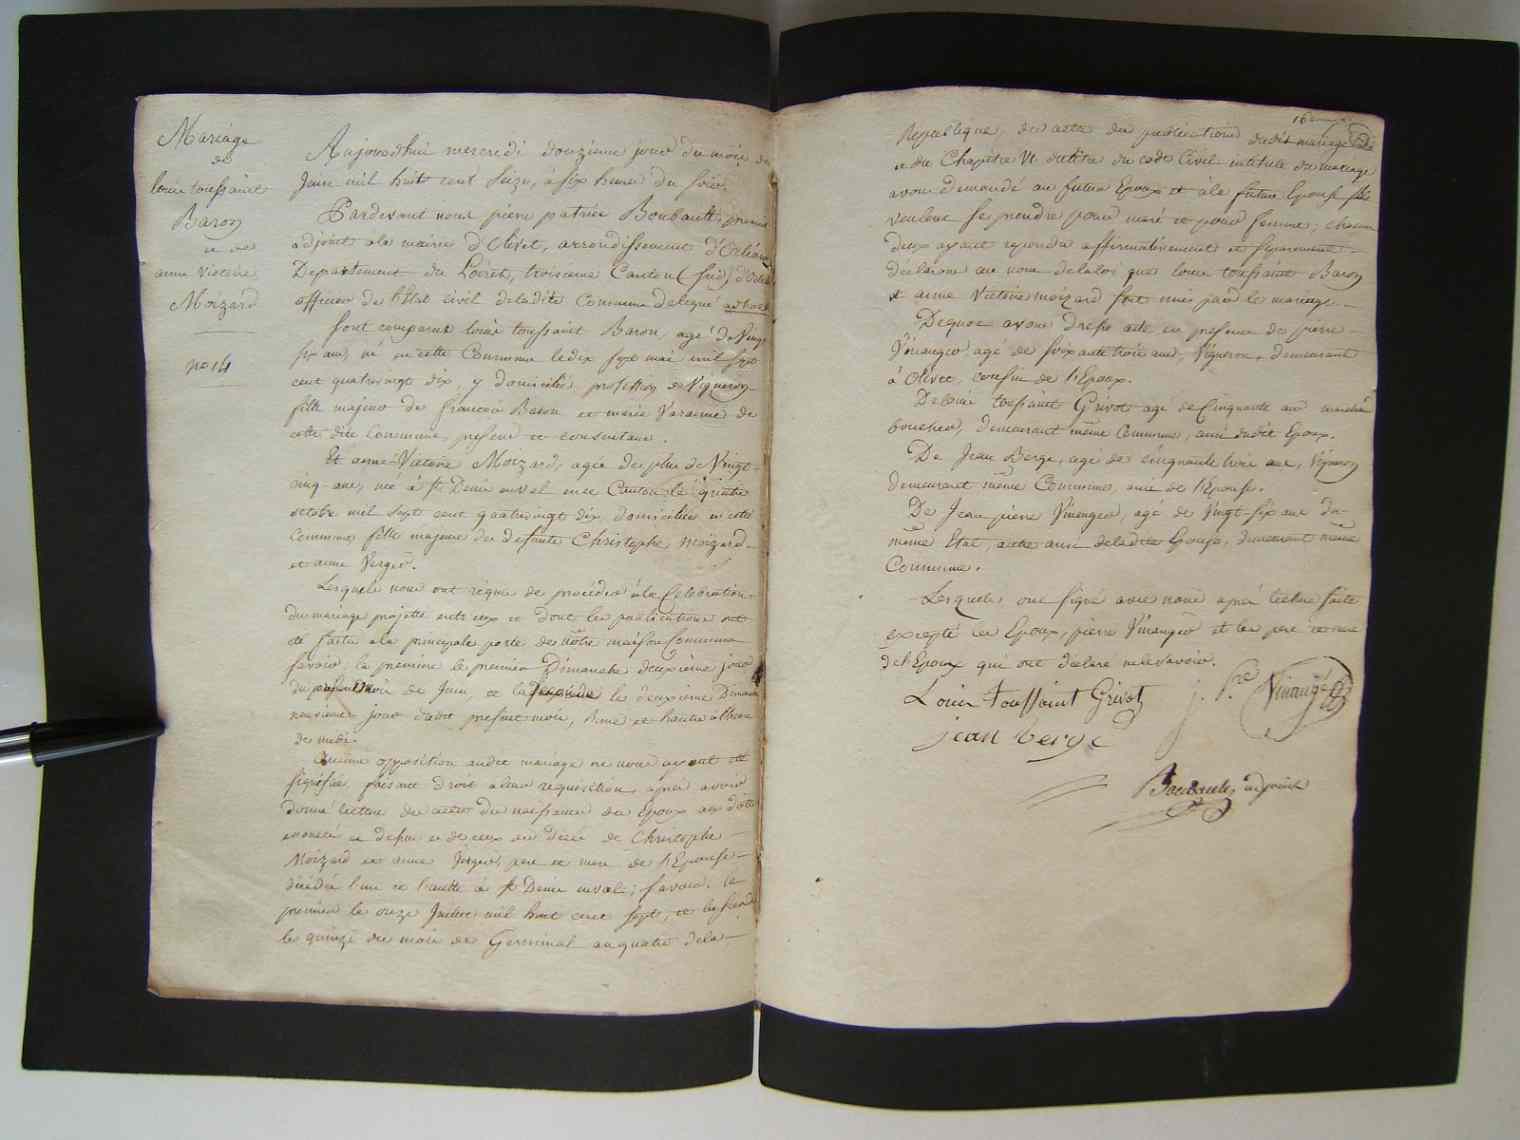 Mariage
de
louis toussaint
Baron
et de
anne Victoire
Moizard
no 14
Aujourd'hui mercredi douzieme jour du mois de
Juin mil huit cent seize, à six heures du soir.
Pardevant nous pierre patrice Boubault, premier
adjoint à la mairie d'Olivet, arrondissement d'Orléans
Departement du Loiret, troisieme Canton (sud) d'Orléans
officier de l'Etat civil deladite Commune delegué ad hoc
sont comparus louis toussaint Baron, agé de Vingt
six ans, né en cette Commune le dix sept mai mil sept
cent quatrevingt dix, y domicilié, profession de Vigneron
fils majeur de francois Baron et marie Varenne de
cette dite Commune, present et consentans.
Et anne Victoire Moizard, agée de plus de Vingt
cinq ans, née à St Denis enval en ce Canton le quatre
octobre mil sept cent quatrevingt dix, domiciliée en cette
Commune fille majeure de defunts Christophe Moizard
et anne Verger.
Lesquels nous ont requis de proceder à la Celebration
du mariage projetté entr'eux et dont les publications ont
été faites a la principale porte de nôtre maison Commune
savoir, la premiere le premier Dimanche deuxième jour
du present mois de Juin, et la seconde le deuxieme Dimanche
neuvieme jour dudit present mois, l'une et l'autre à l'heure
de midi.
Aucune opposition audit mariage ne nous ayant été
signifiée, faisant droit a leur requisition, apres avoir
donné lecture des actes de naissance des Epoux aux d'ts
enoncés et de ceux de décès de Christophe
Moizard et anne Verger, pere et mere de l'Epouse
décédés l'un et l'autre à St Denis enval; savoir: le
premier le onze Juillet mil huit cent sept, et la seconde
le quinze du mois de Germinal an quatre de la
Republique, des actes de publications dudit mariage
et du Chapitre VI du titre du code Civil intitulé du mariage
avons demandé au futur Epoux et à la future Epouse s'ils
veulent se prendre pour mari et pour femme; chacun
d'eux ayant repondu affirmativement et separement
déclarons au nom de la loi que louis toussaint Baron
et anne Victoire moizard sont unis par le mariage
Dequoi avons dressé acte en presence de pierre
Vinauger agé de soixante trois ans, Vigneron, demeurant
à Olivet, cousin de l'Epoux.
De louis toussaint Grivot agé de Cinquante ans marchand
boucher, demeurant même Commune, ami dudit Epoux.
De Jean Berge, agé de cinquante trois ans, Vigneron
demeurant même Commune, ami de l'Epouse.
De Jean pierre Vinauger, agé de Vingt-six ans du
même Etat, autre ami deladite Epouse, demeurant même
Commune.
Lesquels ont signé avec nous après lecture faite
excepté les Epoux, pierre Vinauger et les pere et mere
de l'Epoux qui ont déclaré ne le savoir.
Louis toussaint Grivot
j. Pre Vinauger
jean berge
Boubault, adjoint